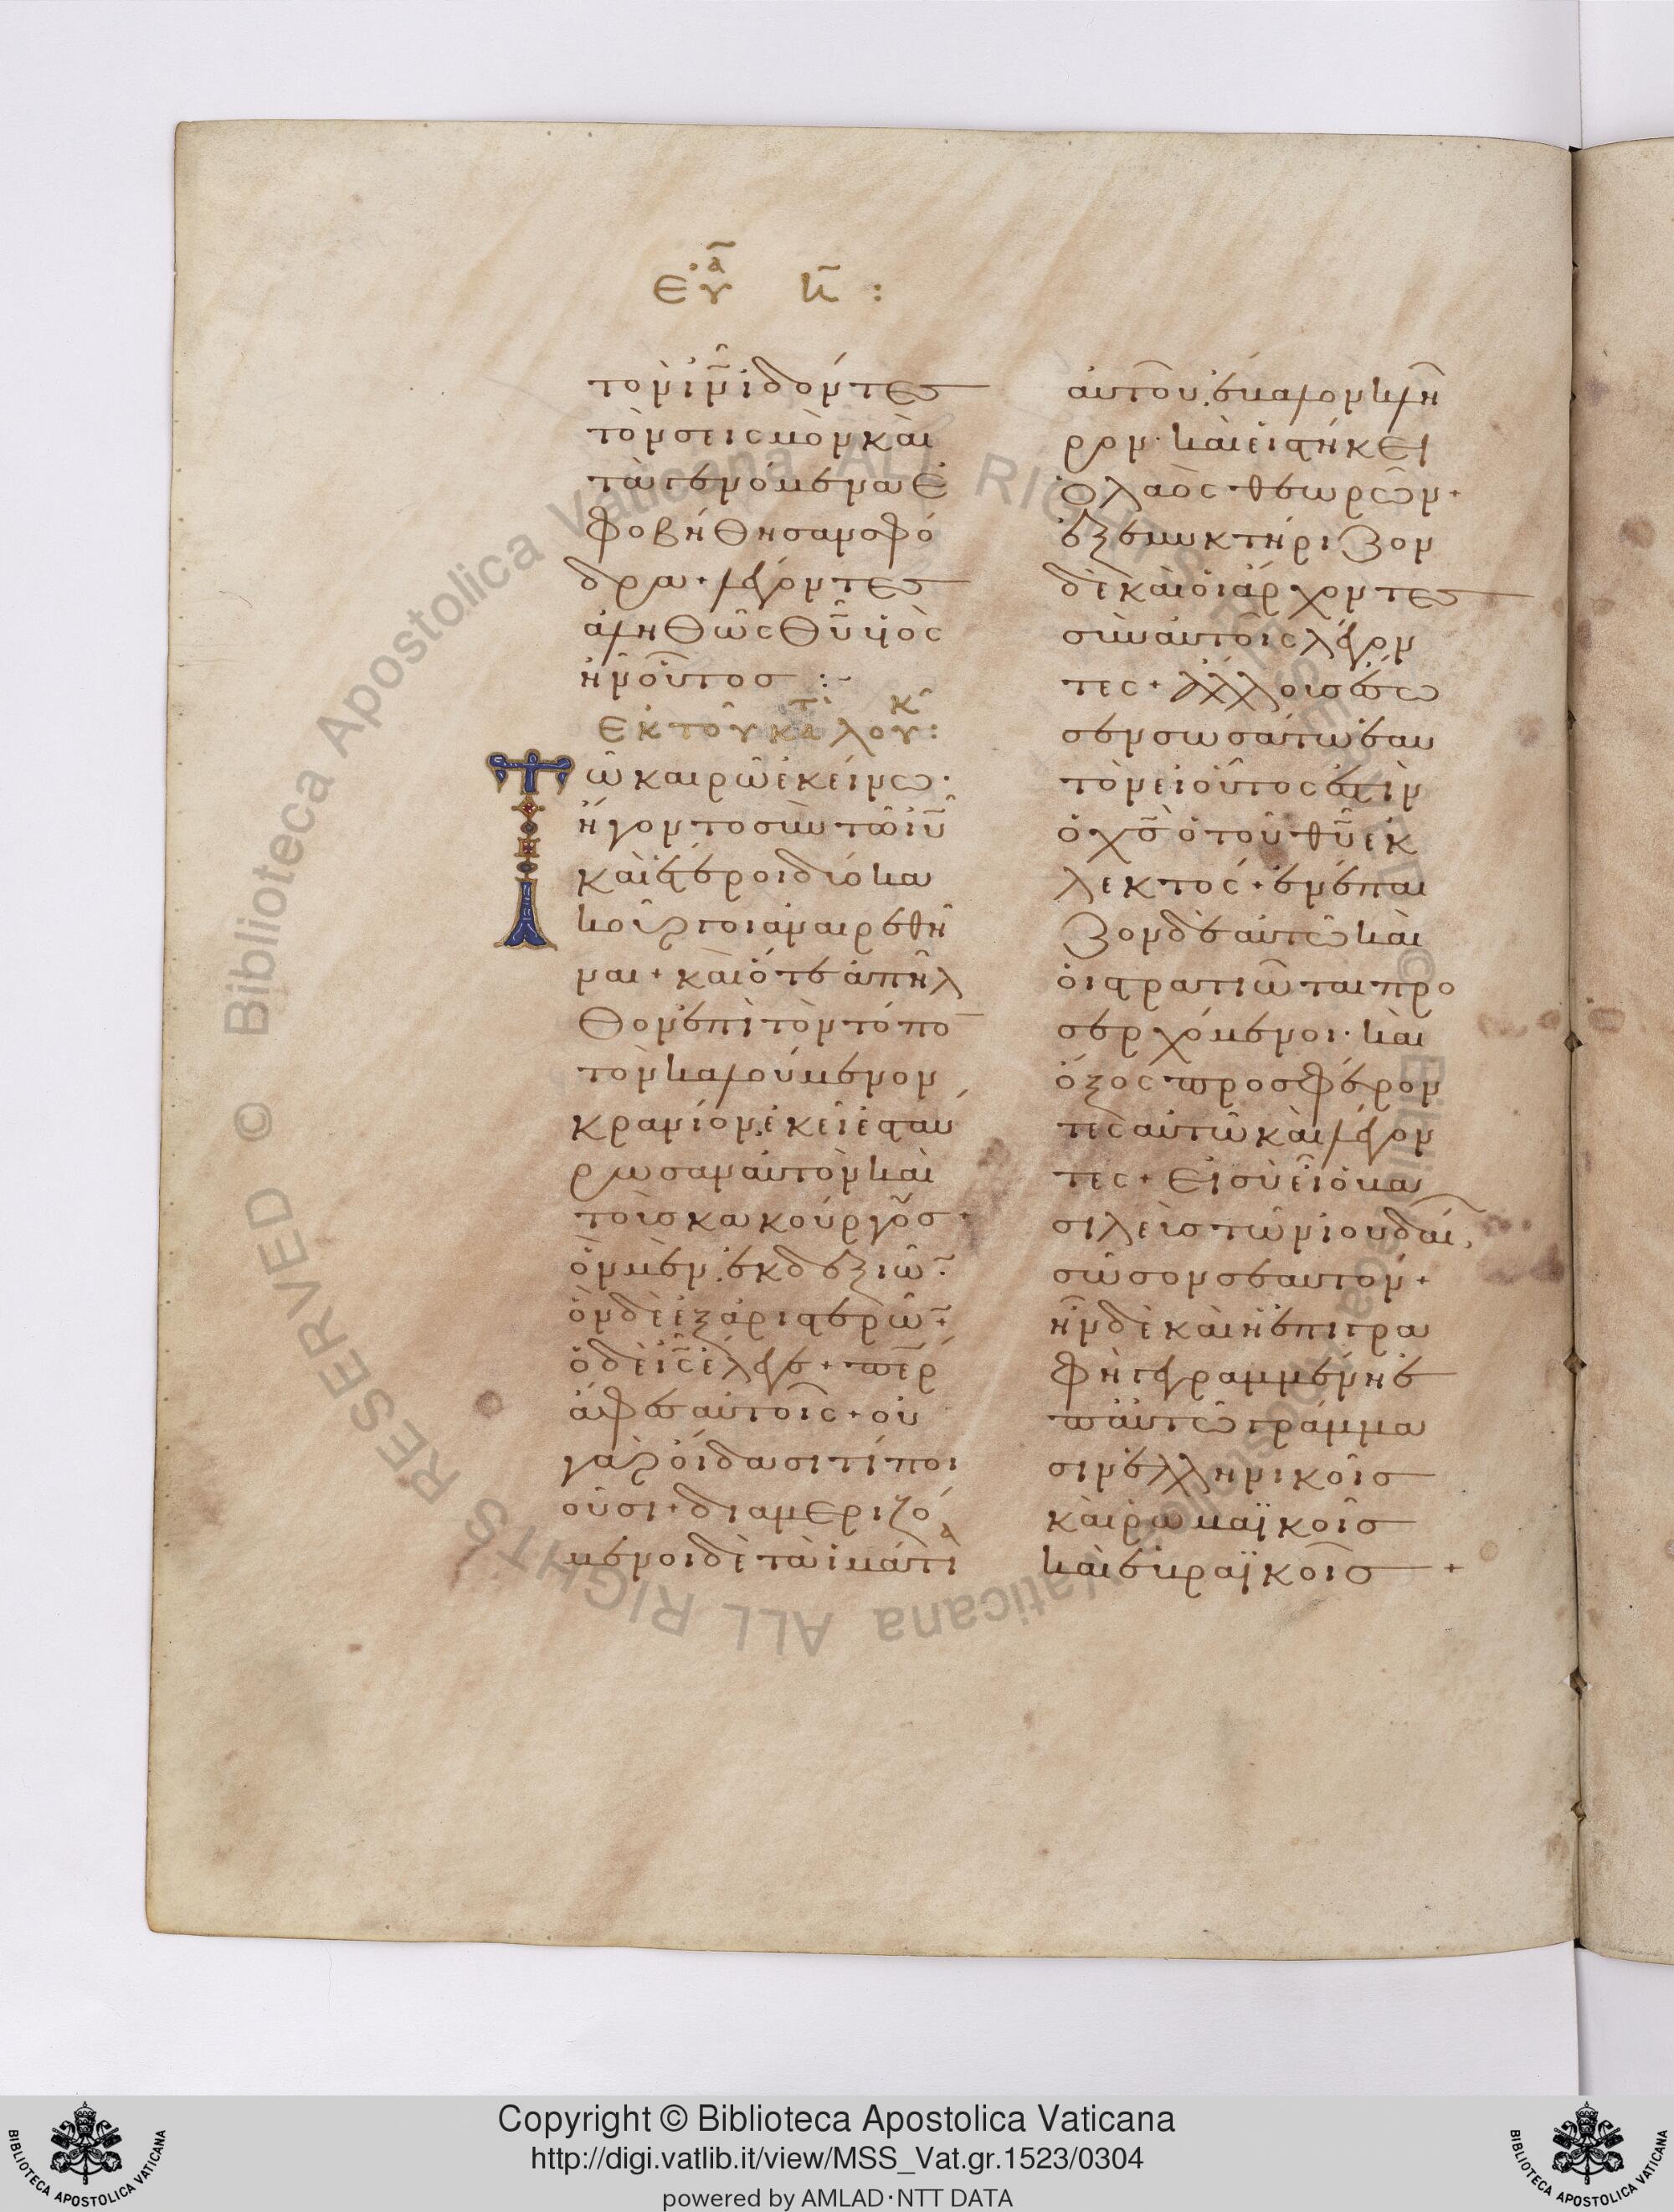 Εὐα κ̅ :
τὸν ἰ̅ν̅ ἰδόντες
τὸν σεισμὸν καὶ
τὰ γενόμενα ἐ
φοβήθησαν σφό
δρα + λέγοντες
ἀληθῶς θ̅υ̅ ϋἱὸς
ἦν οὗτοσ :~
Ἐκ τοῦ κατὰ λουκ :
Τῶ καιρῶ ἐκείνω ·
ἤγοντο σὺν τῶ ἰ̅υ̅
καὶ ἕτεροι δύο κα
κοῦργοι ἀναιρεθῆ
ναι + καὶ ὅτε ἀπῆλ
θον ἐπὶ τὸν τόπο̅
τὸν καλούμενον
κρανίον, ἐκεῖ ἐσταύ
ρωσαν αὐτὸν καὶ
τοὺσ κακούργουσ +
ὃν μὲν, ἐκ δεξιῶ̅ ·
ὃν δὲ ἐξ ἀριστερῶ̅ +
ὁ δὲ ι̅ς̅ ἔλεγε + π̅ε̅ρ̅
ἄφεσ αὐτοῖς + οὐ
γὰρ οἴδασι τί ποι
οῦσι + διαμεριζό
μενοι δὲ τὰ ἱμάτια
αὐτοῦ, ἔβαλον κλῆ
ρον · καὶ εἱστήκει
ὁ λαὸς θεωρῶν +
ἐξεμυκτήριζον
δὲ καὶ οἱ ἄρχοντες
σὺν αὐτοῖς λέγον
τες + ἄλλουσ ἔσω
σεν σωσάτω ἑαυ
τὸν εἰ οὗτος ἐστὶν
ὁ χ̅σ̅ ὁ τοῦ θ̅υ̅ ἐκ
λεκτός + ἐνέπαι
ζον δὲ αὐτῶ καὶ
οἱ στρατιῶται προ
σερχόμενοι · καὶ
ὄξος προσφέρον
τες αὐτῶ καὶ λέγον
τες + Εἰ σὺ εἶ ὁ βα
σιλεὺσ τῶν ἰουδαί,
σῶσον σεαυτόν +
ἦν δὲ καὶ ἡ ἐπιγρα
φὴ γεγραμμένη ἐ
π' αὐτῶ γράμμα
σιν ἑλληνικοῖσ
καὶ ῥωμαϊκοῖσ
καὶ ἑβραϊκοῖσ +
Copyright © Biblioteca Apostolica Vaticana
http://digi.vatlib.it/view/MSS_Vat.gr.1523/0304
powered by AMLAD·NTT DATA